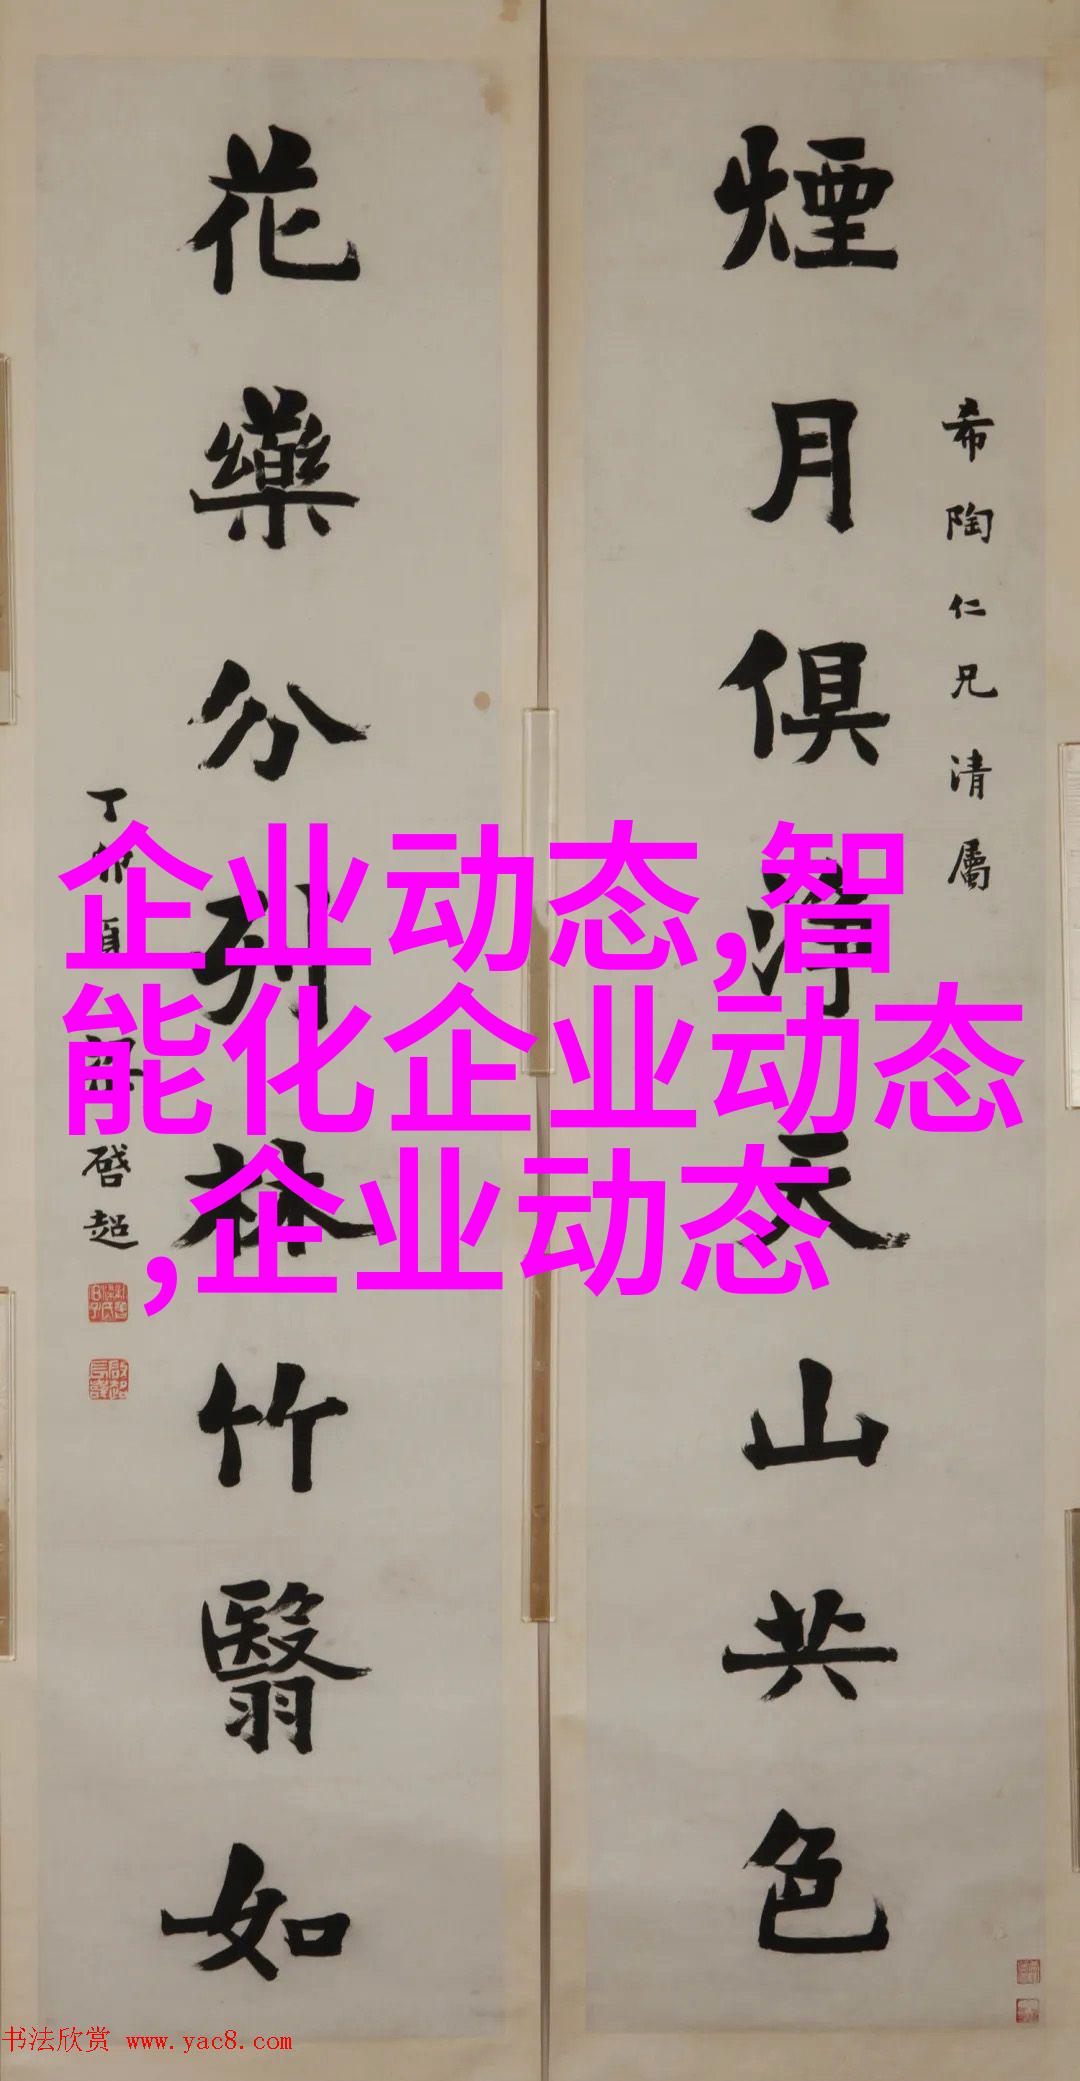 煙月俱淨天山共色
希陶仁兄清屬
花藥分列林竹翳如
丁卯夏梁啓超
企业动态,智
能化企业动态
,企业动态
书法欣赏 www.yac8.com